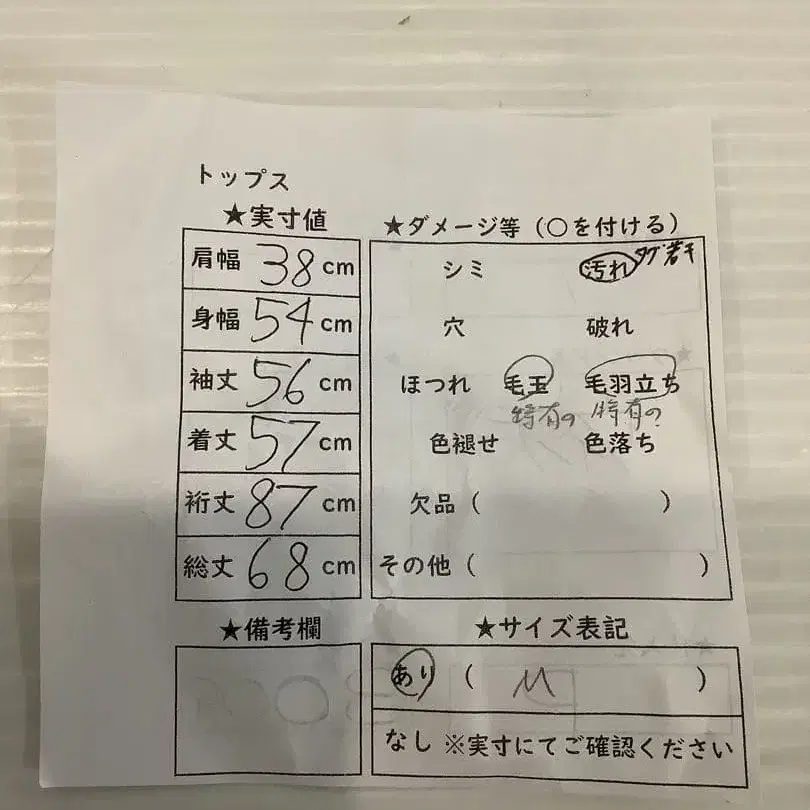 トップス
★実寸値
肩幅 38 cm
身幅 54 cm
袖丈 56 cm
着丈 57 cm
裄丈 87 cm
総丈 68 cm
★ダメージ等（○を付ける）
シミ 汚れ タグ若干
穴 破れ
ほつれ 毛玉 毛羽立ち
特有の 特有の
色褪せ 色落ち
欠品（ ）
その他（ ）
★備考欄
★サイズ表記
あり（ M ）
なし ※実寸にてご確認ください